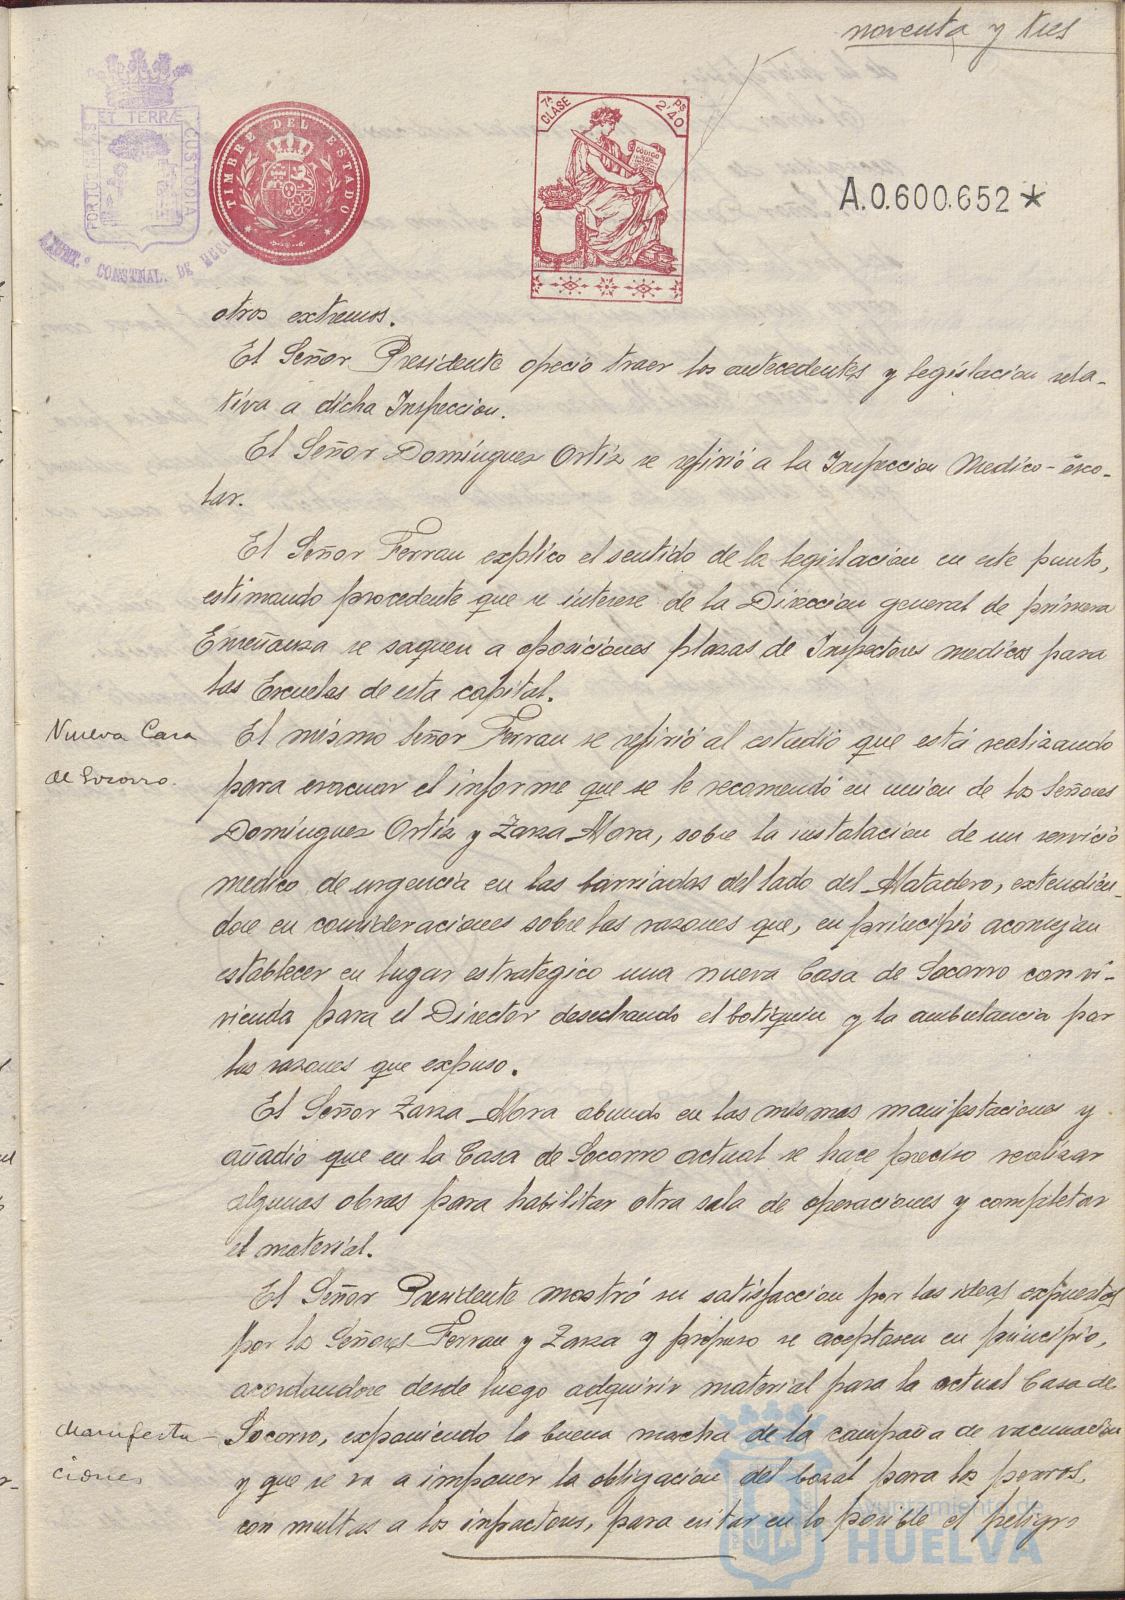 noventa y tres
PORTUS MARIS ET TERRÆ CUSTODIA
AYUNT.º CONSTNAL. DE HUELVA
TIMBRE DEL ESTADO
7ª CLASE
2'40 PS
CODIGO
A.0.600.652*
otros extremos.
El Señor Presidente ofreció traer los antecedentes y legislacion rela-
tiva a dicha Inspeccion.
El Señor Domínguez Ortíz se refirió a la Inspeccion Medico-esco-
lar.
El Señor Ferrau explicó el sentido de la legislacion en este punto,
estimando procedente que se interese de la Direccion general de primera
Enseñanza se saquen a oposiciones plazas de Inspectores medicos para
las Escuelas de esta capital.
Nueva Casa
de Socorro.
El mismo Señor Ferrau se refirió al estudio que está realizando
para evacuar el informe que se le recomendó en union de los Señores
Domínguez Ortíz y Zarza Mora, sobre la instalacion de un servicio
medico de urgencia en las barriadas del lado del Matadero, extendién-
dose en consideraciones sobre las razones que, en principio aconsejan
establecer en lugar estrategico una nueva Casa de Socorro con vi-
vienda para el Director desechando el botiquin y la ambulancia por
las razones que expuso.
El Señor Zarza Mora abundó en las mismas manifestaciones y
añadió que en la Casa de Socorro actual se hace preciso realizar
algunas obras para habilitar otra sala de operaciones y completar
el material.
El Señor Presidente mostró su satisfaccion por las ideas expuestas
por los Señores Ferrau y Zarza y propuso se aceptasen en principio,
acordandose desde luego adquirir material para la actual Casa de
Manifesta-
ciones
Socorro, exponiendo la buena marcha de la campaña de vacunacion
y que se va a imponer la obligacion del bozal para los perros,
con multas a los infractores, para evitar en lo posible el peligro
Ayuntamiento de
HUELVA